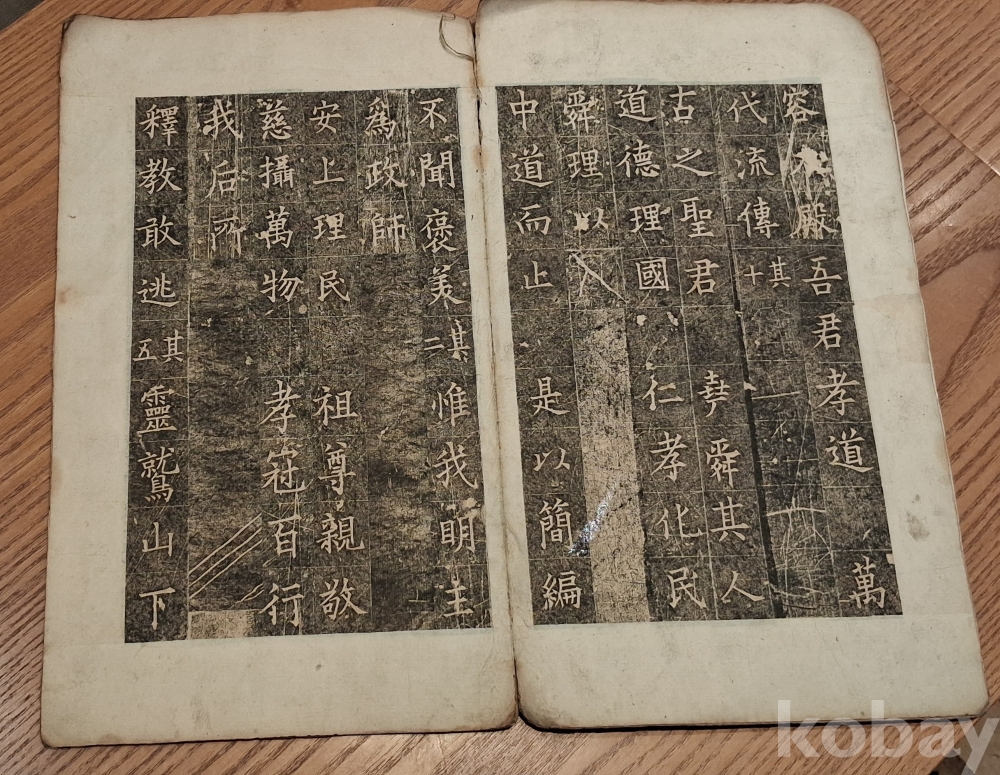 容殿吾君孝道萬
代流傳其十
古之聖君堯舜其人
道德理國仁孝化民
舜理以
中道而止是以簡編
不聞褒美其二惟我明主
爲政師
安上理民祖尊親敬
慈攝萬物孝冠百行
我后所
釋教敢逃其五靈鷲山下
kobay